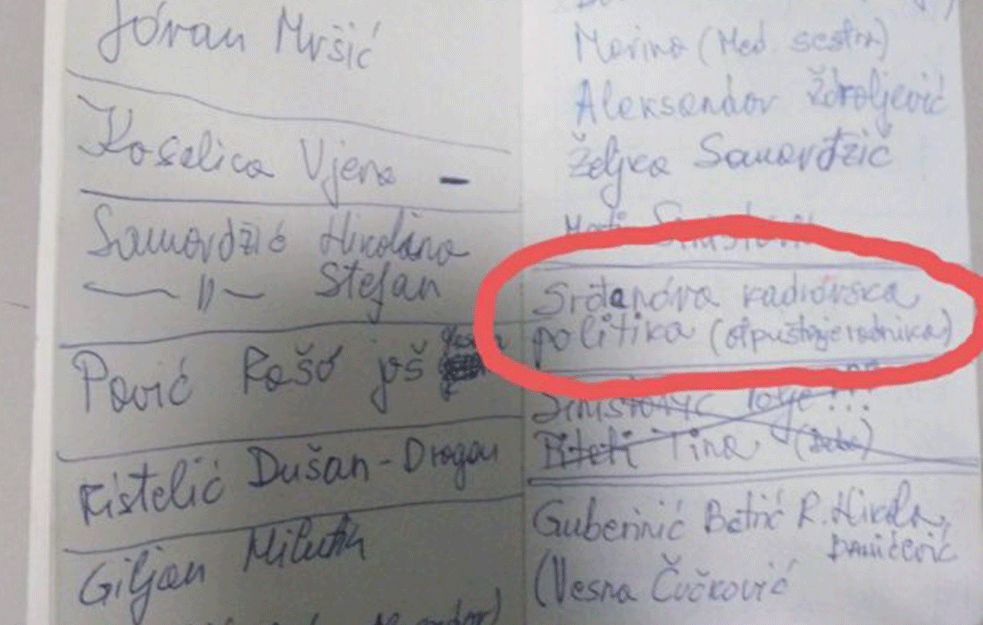 Joran Mršić
Koselica Vjera –
Samordžić Nikolina
— 〃 — Stefan
Pović Rašo još
Kistelić Dušan - Dragan
Giljan Milutin
Marina (Med. sestra)
Aleksandar Ždroljević
Željka Samordžić
Srđanova kadrovska
politika (otpuštanje radnika)
Tina
Guberinić Batrić R. Nikola,
Danićević
(Vesna Čučković